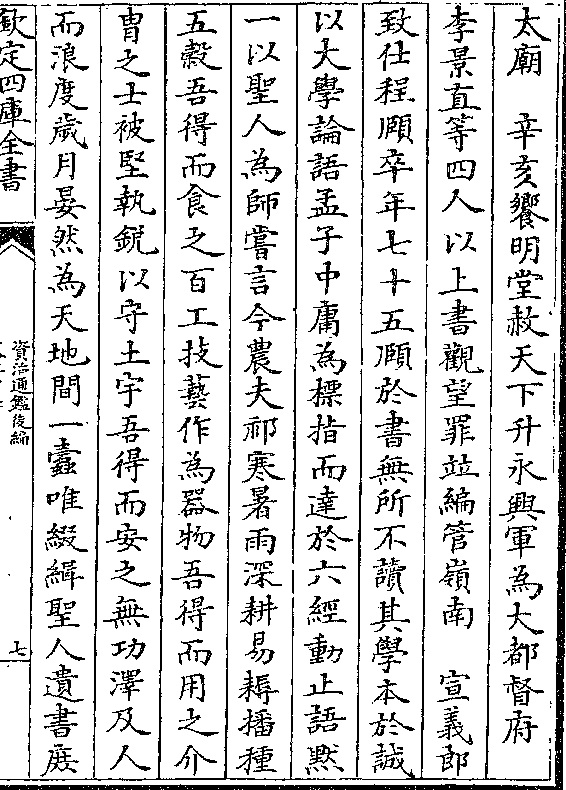 太廟　辛亥饗明堂赦天下升永興軍為大都督府
李景直等四人以上書觀望罪竝編管嶺南　宣義郎
致仕程頤卒年七十五頤於書無所不讀其學本於誠
以大學論語孟子中庸為標指而達於六經動止語默
一以聖人為師嘗言今農夫祁寒暑雨深耕易耨播種
五穀吾得而食之百工技藝作為器物吾得而用之介
胄之士被堅執銳以守土宇吾得而安之無功澤及人
而浪度歲月晏然為天地間一蠹唯綴緝聖人遺書庶
欽定四庫全書
資治通鑑後編
七